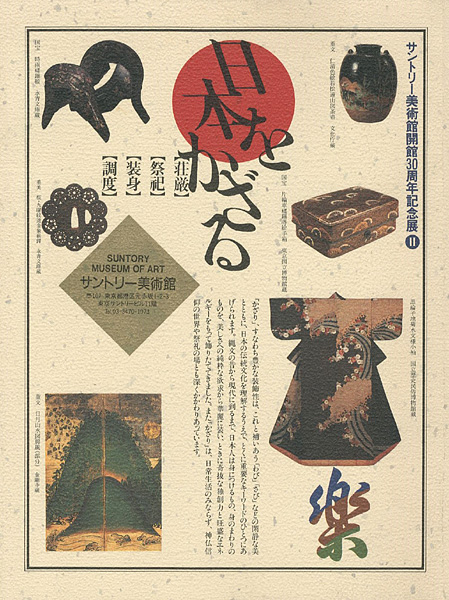 サントリー美術館開館30周年記念展 II
日本をかざる
【荘厳】
【祭祀】
【装身】
【調度】
国宝 時雨螺鈿鞍 永青文庫蔵
国宝 片輪車螺鈿蒔絵手箱 東京国立博物館蔵
SUNTORY
MUSEUM OF ART
サントリー美術館
〒107 東京都港区元赤坂1-2-3
東京サントリービル11階
Tel.03-3470-1073
"かざり"、すなわち豊かな装飾性は、これと補いあう"わび""さび"などの閑静な美
とともに、日本の伝統文化を理解するうえで、とくに重要なキーワードのひとつにあ
げられます。縄文の昔から現代に到るまで、日本人は身につけるもの、身のまわりの
ものを、美しさへの純粋な欲求から華麗に装い、ときに奇抜な独創力と旺盛なエネ
ルギーをもって飾りたててきました。また、"かざり"は、日常生活のみならず、神仏信
仰の世界や祭礼の場とも深くかかわりあっています。
重文 日月山水図屏風(部分) 金剛寺蔵
樂